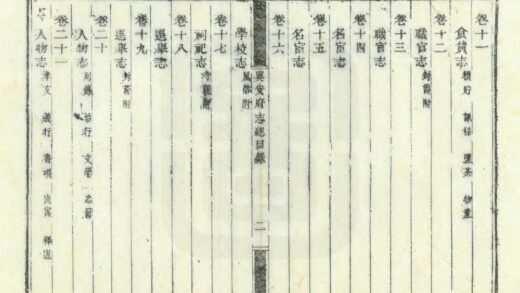 卷十一
食貨志 積貯 課程 鹽茶 物產
卷十二
職官志 封爵附
卷十三
職官志
卷十四
名宦志
卷十五
名宦志
卷十六
興安府志總目錄 二
學校志 風俗附
卷十七
祠祀志
卷十八
選舉志
卷十九
選舉志 封蔭附
卷二十
人物志 文學 忠節
卷二十一
人物志 孝友 義行 釋道